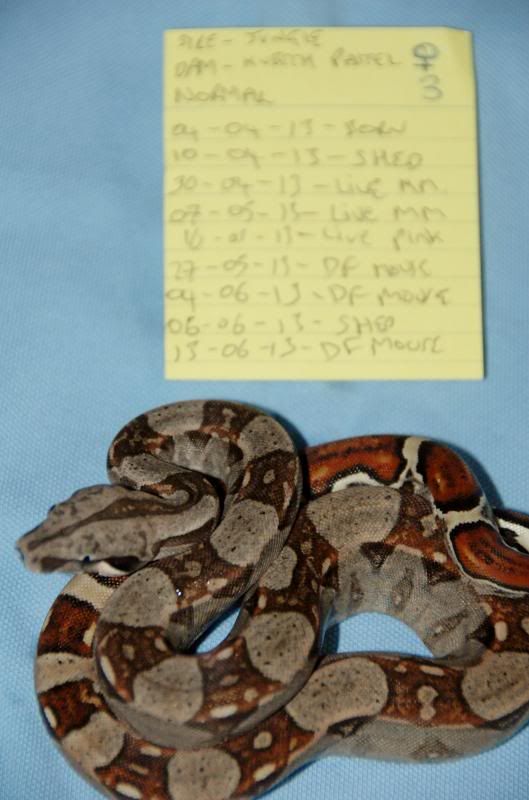 SIRE - JUNGLE ♀
DAM - PASTEL 3
NORMAL
04-04-13 - BORN
10-04-13 - SHED
30-04-13 - LIVE MM
07-05-13 - LIVE MM
13 - LIVE PINK
27-05-13 - DF MOUSE
04-06-13 - DF MOUSE
06-06-13 - SHED
13-06-13 - DF MOUSE